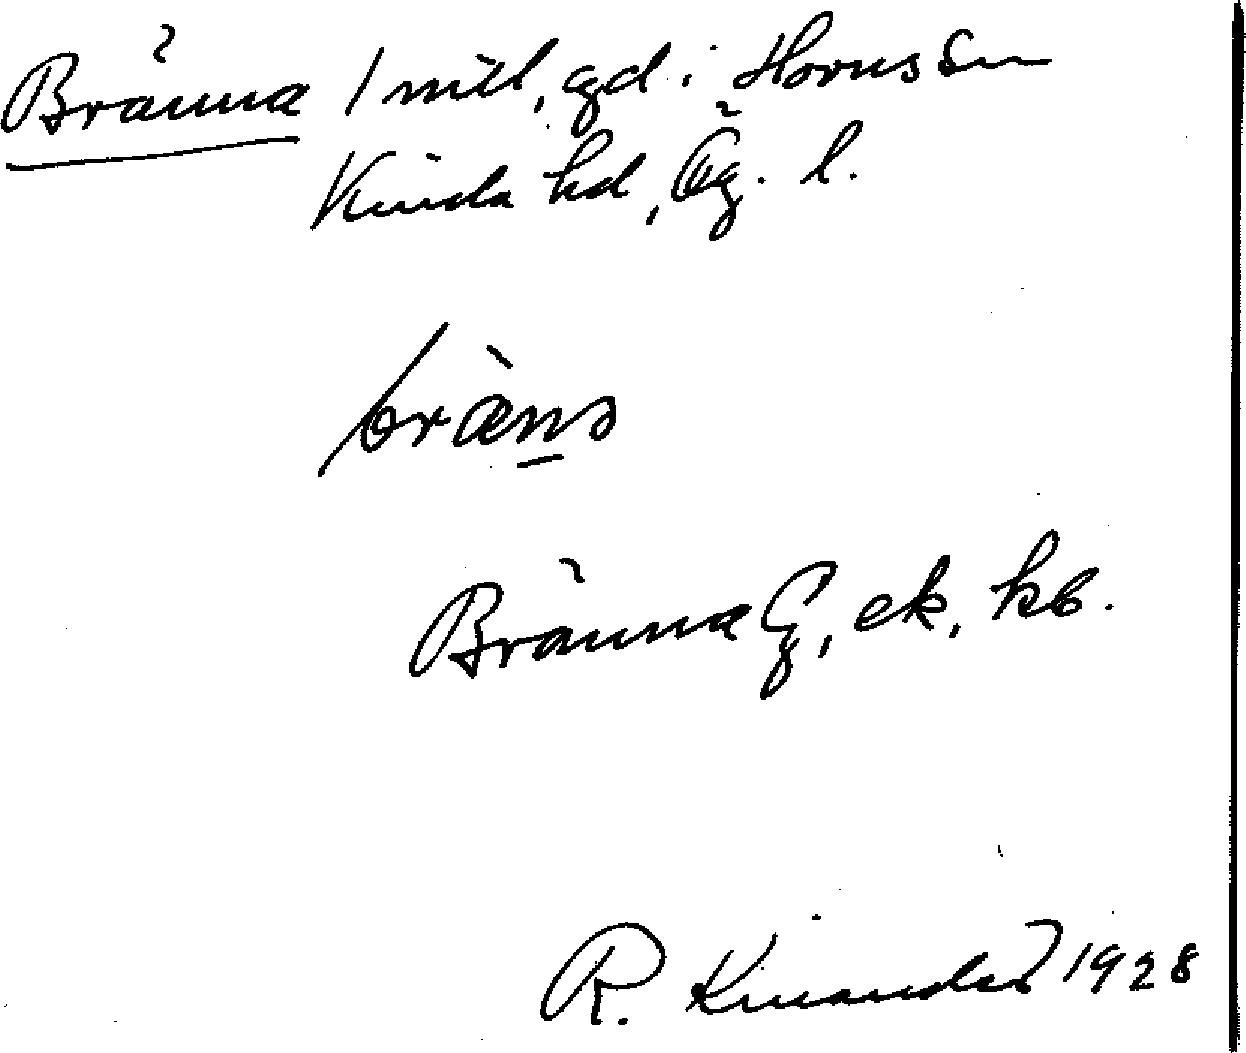 Bränna 1 mtl, gd i Horns sn
Kinda hd, Ög. l.
bräns
Bränna G, ek, kb.
R. Kinander 1928